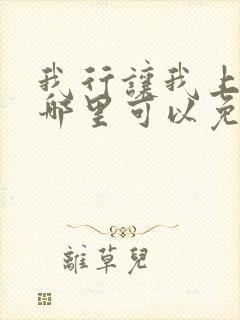 我行讓我上
哪里可以免
離草兒